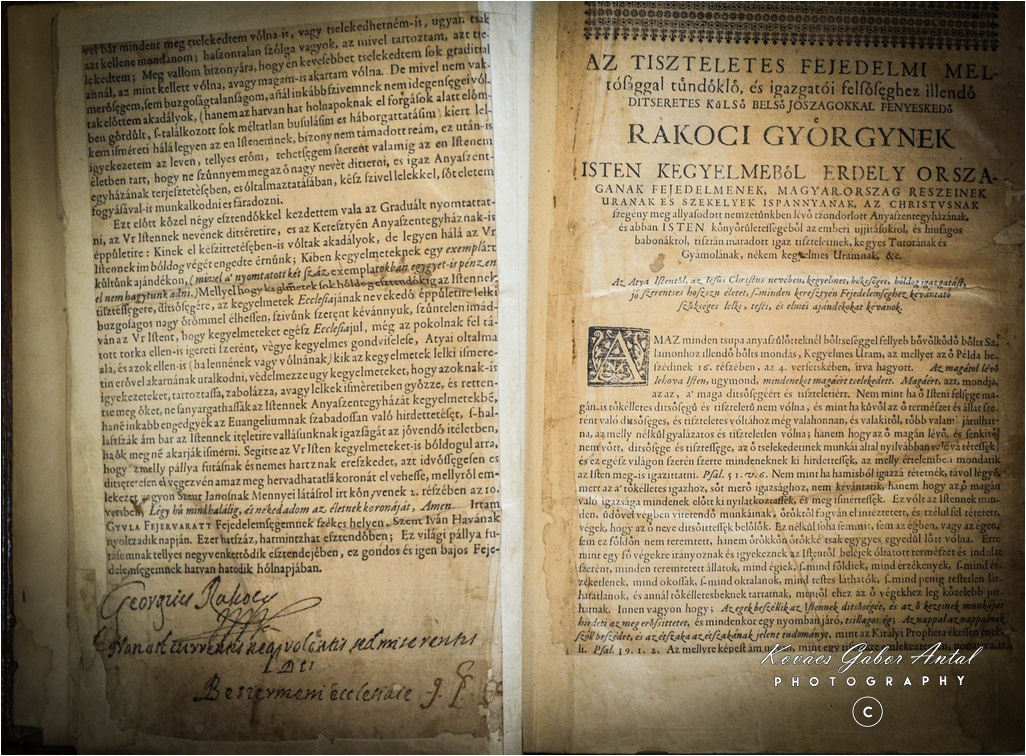 vel bár mindent meg tselekedtem vólna is, vagy tselekedhetném-is, ugyan tsak
azt kellene mondanom; hasztalan szólga vagyok, az mivel tartoztam, azt tse-
lekedtem; Meg vallom bizonyára, hogy én kevesebbet tselekedtem sok gradittal
annál, az mint kellett vólna, avagy magam-is akartam vólna. De mivel nem vak-
merőségem, sem buzgóságtalanságom, añál inkább szivemnek nem idegensége i vól-
tak előttem akadályok, (hanem az hat hólnapoknak el forgások alatt előm-
ben gördűlt, s-találkozott sok méltatlan busulásim es háborgattatásim) kiert len-
kem isméreti hálá legyen az en Istenemnek, bizony nem támadott reám, ez után-is
igyekezetem az leven, tellyes erőm, tehetségem szerent valamig az en Istenem
életben tart, hogy ne szűnnyem meg az ő nagy nevét ditserni, es igaz Anyaszent-
egyházának terjesztetésében, es óltalmaztatásában, kész szivel lelekkel, sőt életem
fogyásával-is munkalkodni es fáradozni.
Ezt előtt közel négy esztendőkkel kezdettem vala az Graduált nyomtattat-
ni, az Vr Istennek nevének ditséretire, es az Keresztyén Anyaszentegyháznak-is
éppűletire: Kinek el készittetésében-is vóltak akadályok, de legyen hálá az Vr
Istennek im bóldog végét engedte érnünk; Kiben kegyelmeteknek egy exemplárt
kültünk ajándékon, (mivel a' nyomtatott két száz exemplarokban egygyet-is pénzen
el nem hagytunk adni.) Mellyel hogy kegyelmetek sok bóldog esztendőkig az Istennek
tisztességere, ditsőségére, az kegyelmetek Ecclesiajának nevekedő éppűletire lelki
buzgoságos nagy örömmel élhessen, szivünk szerent kévánnyuk, szüntelen imád-
ván az Vr Istent, hogy kegyelmeteket egész Ecclesiajul, még az pokolnak fel tá-
tott torka ellen-is igereti szerént, végye kegyelmes gondviselése, Atyai oltalma
ala, és azok ellen-is (ha lennének vagy vólnának) kik az kegyelmetek lelki ismere-
tin erővel akarnának uralkodni, védelmezze ugy kegyelmeteket, hogy azoknak-is
igyekezeteket, tartoztassa, zabolázza, avagy lelkek ismérétiben győzze, és retten-
tse meg őket, ne sanyargathassák az Istennek Anyaszentegyházát kegyelmetekbē,
hanē inkabb engedgyék az Euangeliumnak szabadossan való hirdettetését, s-hal-
lastszák ám bar az Istennek itęletire vallásunknak igazságát az jövendő itéletben,
ha ők meg nē akarják ismérni. Segitse az Vr Isten kegyelmeteket-is bóldogul arra,
hogy az melly pályya futásnak és nemes hartznak ereszkedet, azt idvösségesen es
ditséretesen el végezvén amaz meg hervadhatatlā koronát el vehesse, mellyről em-
lekezet vagyon Szent Janosnak Mennyei látásról irt könyvenek 2. részében az 10.
versben, Légy hű mindhalálig, és néked adom az életnek koronáját, Amen Irtam
GYULA FEJERVARATT Fejedelemségemnek székes helyen, Szent Iván Havának
nyoltzadik napján. Ezer hatszáz, harmintzhat esztendőben; Ez világi pállya fu-
tásomnak tellyes negyvenkettődik esztendejében, ez gondos és igen bajos Feje-
delemségemnek hatvan hatodik hólnapjában.
Georgius Rakocy
Non est currentis neq; volentis sed miserentis
Dei
Beszermeni ecclesiae
AZ TISZTELETES FEJEDELMI MEL-
tósággal tündöklő, és igazgatói felsőséghez illendő
DITSERETES KÜLSŐ BELSŐ JÓSZAGOKKAL FENYESKEDŐ
RAKOCI GYÖRGYNEK
ISTEN KEGYELMEBŐL ERDELY ORSZA-
GANAK FEJEDELMENEK, MAGYARORSZAG RESZEINEK
URANAK ES SZEKELYEK ISPANNYANAK, AZ CHRISTVSNAK
szegény meg allyasodott nemzetünkben lévő tzondorlott Anyaszentegyházának,
és abban ISTEN könyörületességéből az emberi ujjitásokról, és hiuságos
babonáktol, tisztán maradott igaz tiszteleinek, kegyes Tutorának és
Gyámolának, nékem kegyelmes Uramnak, &c.
Az Atya Istentől, az Jesus Christus nevében, kegyelmet, bekességet, bóldog igazgatást,
jó szerentsés hosszu életet, s-minden keresztyén Fejedelemséghez kévántató
szükséges lelki, testi, és elmei ajándékokat kévánok.
AMAZ minden tsupa anyaszülötteknél böltseséggel fellyeb bővölködő bőlts Sa-
lamonhoz illendő bőlts mondás, Kegyelmes Uram, az mellyet az ő Példa be-
szédinek 16. részében, az 4. versetskében, irva hagyott. Az magátol lévő
Iehova Isten, ugymond, mindeneket magáért tselekedett. Magáért, azt mondja,
az az, a' maga ditsőségéért és tiszteletiért. Nem mint ha ő Isteni felsége ma-
gán-is tőkélletes ditsőségű és tiszteletű nem vólna, és mint ha küvől az ő természet és állat sze-
rent való ditsőséges, és tiszteletes vóltához még valahonnan, és valakitől, több valami járulhat-
na, az melly nélkűl gyalázatos és tiszteletlen vólna; hanem hogy az ő magán lévő, és senkitől
nem vött, ditsősége és tisztessége, az ő tselekedetinek munkái által nyilvábban esévé tétessék,
és ez egész világon szerén szerte mindeneknek ki hirdettessék, az melly értelembe mondatik
az Isten meg-is igazittatni. Psal. 51. v. 6. Nem mint ha hamisból igazzá tétetnék, távol légyē,
mert az a' tőkélletes igazhoz, sőt merő igazsághoz, nem kévántatik, hanem hogy az ő magán
való igazsága mindenek előtt ki nyilatkoztassék, és meg ismértessék. Ez vólt az Istennek min-
den, üdővel végben vitetendő munkáinak, öröktől fogván el intéztetett, és tzélul fel tétetett,
végek, hogy az ő neve ditsőittessék belőlök. Ez nélkűl soha semmit, sem az égben, vagy az égen,
sem ez földön nem teremtett, hanem örökkön örökké tsak egygyes egyedűl lött vólna. Erre
mint egy fő végekre irányoznak és igyekeznek az Istentől beléjek óltatott természet és indulat
szerént, minden teremtetett állatok, mind égiek, s-mind földiek, mind érzékenyek, s-mind ér-
zéketlenek, mind okossák, s-mind oktalanok, mind testes láthatók, s-mind penig testetlen lát-
hatatlanok, és annál tőkélletesbeknek tartatnak, mentől ehez az ő végekhez leg közelebb jut-
hatnak. Innen vagyon hogy; Az egek beszéllik az Istennek ditsőségét, és az ő kezeinek munkáját
hirdeti az meg erőssittetet, és mindenkor egy nyomban járó, tsillagos ég; Az nappal az nappalnak
szól beszédet, és az étszaka az étszakának jelent tudományt, mint az Királyi Propheta ékessen ének-
li. Psal. 19. 1. 2. Az mellyre képest ám
Kovacs Gabor Antal
PHOTOGRAPHY
C